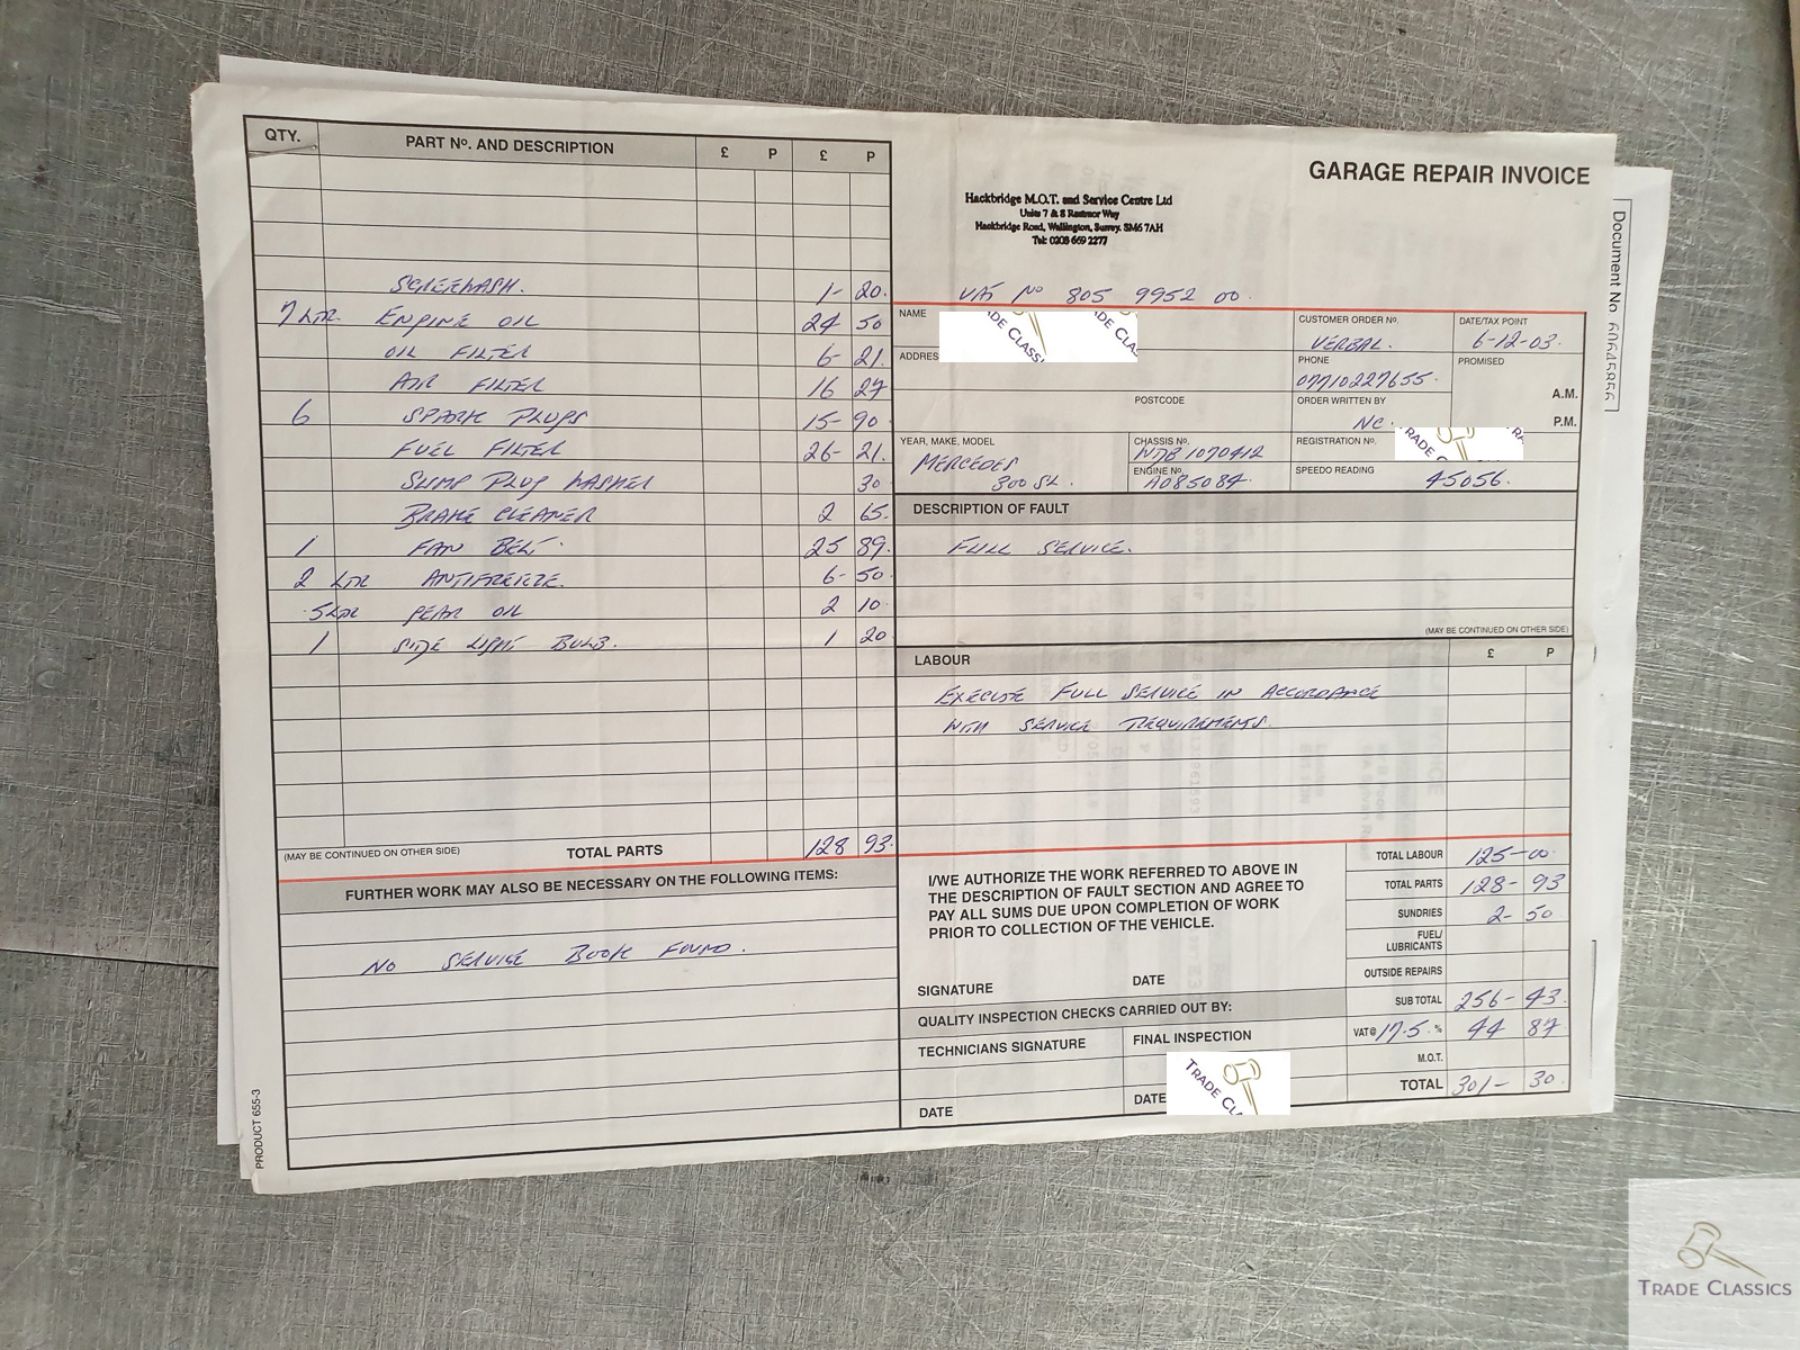 QTY. PART No. AND DESCRIPTION £ P £ P
SCREEWASH. 1- 20.
7 LTR ENGINE OIL 24 50
OIL FILTER 6- 21.
AIR FILTER 16 27
6 SPARK PLUGS 15- 90
FUEL FILTER 26- 21.
SUMP PLUG WASHER 30
BRAKE CLEANER 2 65.
1 FAN BELT. 25 89.
2 LTR ANTIFREEZE. 6- 50
.5 LTR GEAR OIL 2 10
1 SIDE LIGHT BULB. 1 20
(MAY BE CONTINUED ON OTHER SIDE) TOTAL PARTS 128 93.
FURTHER WORK MAY ALSO BE NECESSARY ON THE FOLLOWING ITEMS:
NO SERVICE BOOK FOUND.
PRODUCT 655-3
GARAGE REPAIR INVOICE
Hackbridge M.O.T. and Service Centre Ltd
Units 7 & 8 Restmor Way
Hackbridge Road, Wallington, Surrey. SM6 7AH
Tel: 0208 669 2277
VAT No 805 9952 00.
NAME
ADDRES
POSTCODE
CUSTOMER ORDER No.
VERBAL.
DATE/TAX POINT
6-12-03.
PHONE
07710227655.
PROMISED
A.M.
P.M.
ORDER WRITTEN BY
NC.
YEAR, MAKE, MODEL
MERCEDES
300 SL.
CHASSIS No.
WDB1070412
ENGINE No.
A085084.
REGISTRATION No.
SPEEDO READING
45056.
DESCRIPTION OF FAULT
FULL SERVICE.
(MAY BE CONTINUED ON OTHER SIDE)
LABOUR £ P
EXECUTE FULL SERVICE IN ACCORDANCE
WITH SERVICE REQUIREMENTS.
I/WE AUTHORIZE THE WORK REFERRED TO ABOVE IN
THE DESCRIPTION OF FAULT SECTION AND AGREE TO
PAY ALL SUMS DUE UPON COMPLETION OF WORK
PRIOR TO COLLECTION OF THE VEHICLE.
SIGNATURE DATE
QUALITY INSPECTION CHECKS CARRIED OUT BY:
TECHNICIANS SIGNATURE FINAL INSPECTION
DATE DATE
TOTAL LABOUR 125-00.
TOTAL PARTS 128- 93
SUNDRIES 2- 50
FUEL/
LUBRICANTS
OUTSIDE REPAIRS
SUB TOTAL 256- 43.
VAT@ 17.5. % 44 87
M.O.T.
TOTAL 301- 30.
Document No.
TRADE CLASSICS